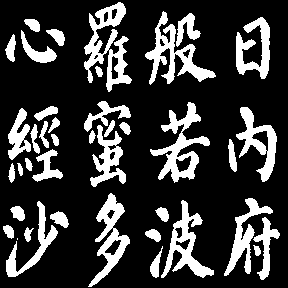 日内府
般若波
羅蜜多
心經沙